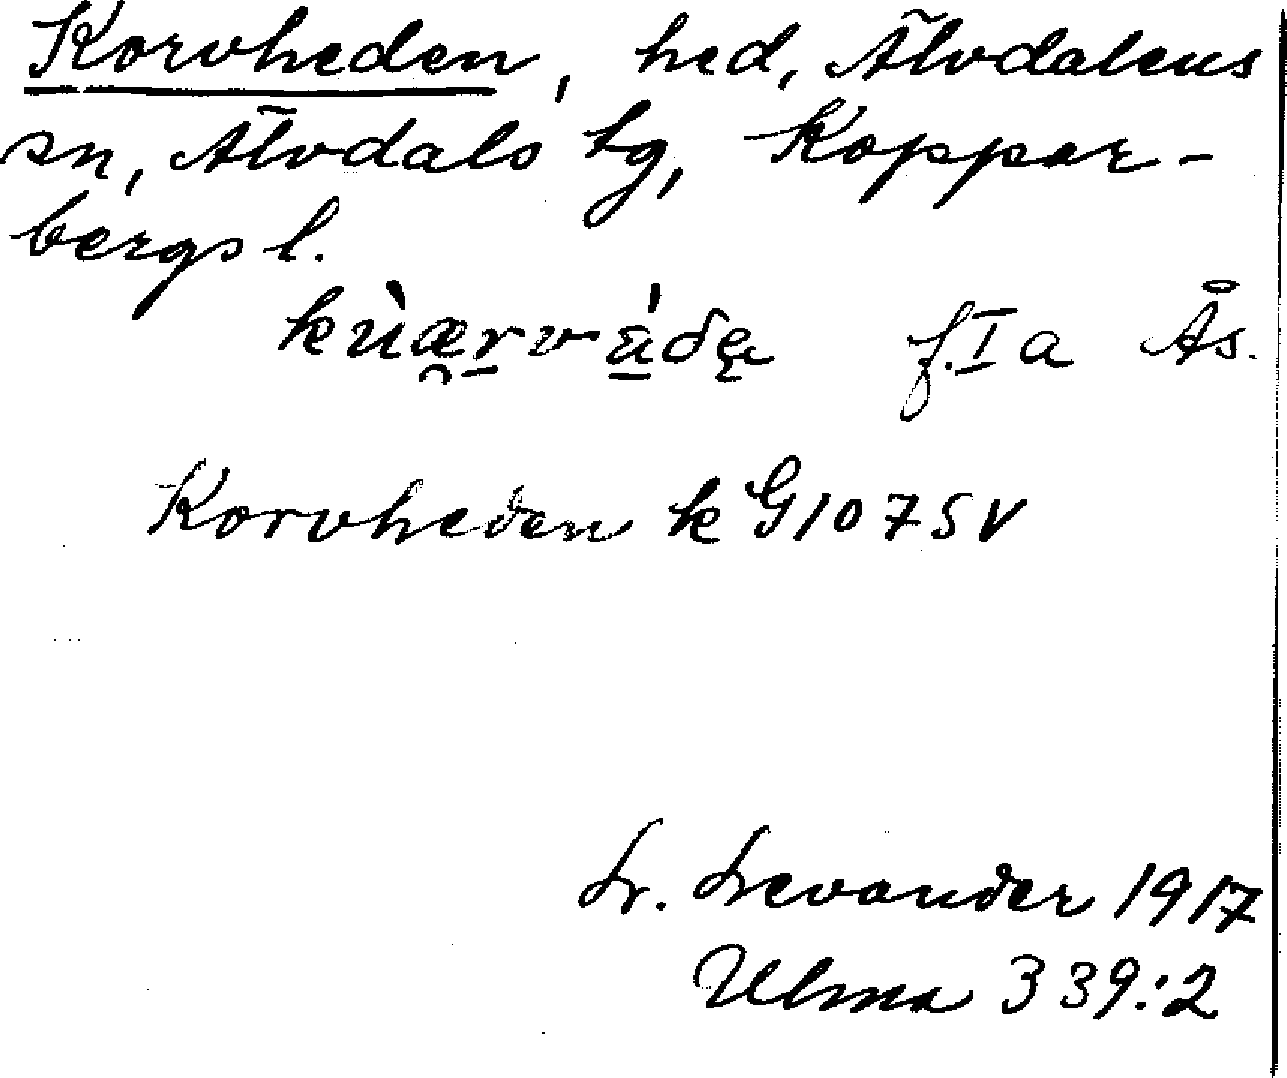 Korvheden, hed, Älvdalens
sn, Älvdals tg, Koppar-
bergs l.
f. I a Ås.
Korvheden k G1075V
L. Levander 1917
Ulma 339:2